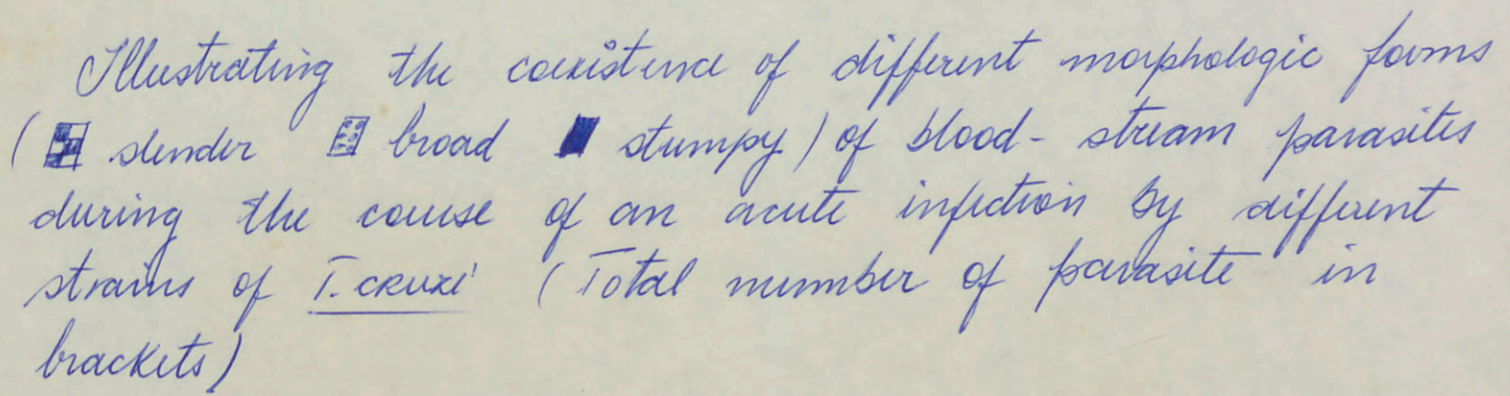 Illustrating the coexistence of different morphologic forms
( slender broad stumpy) of blood-stream parasites
during the course of an acute infection by different
strains of T. CRUZI (Total number of parasite in
brackets)